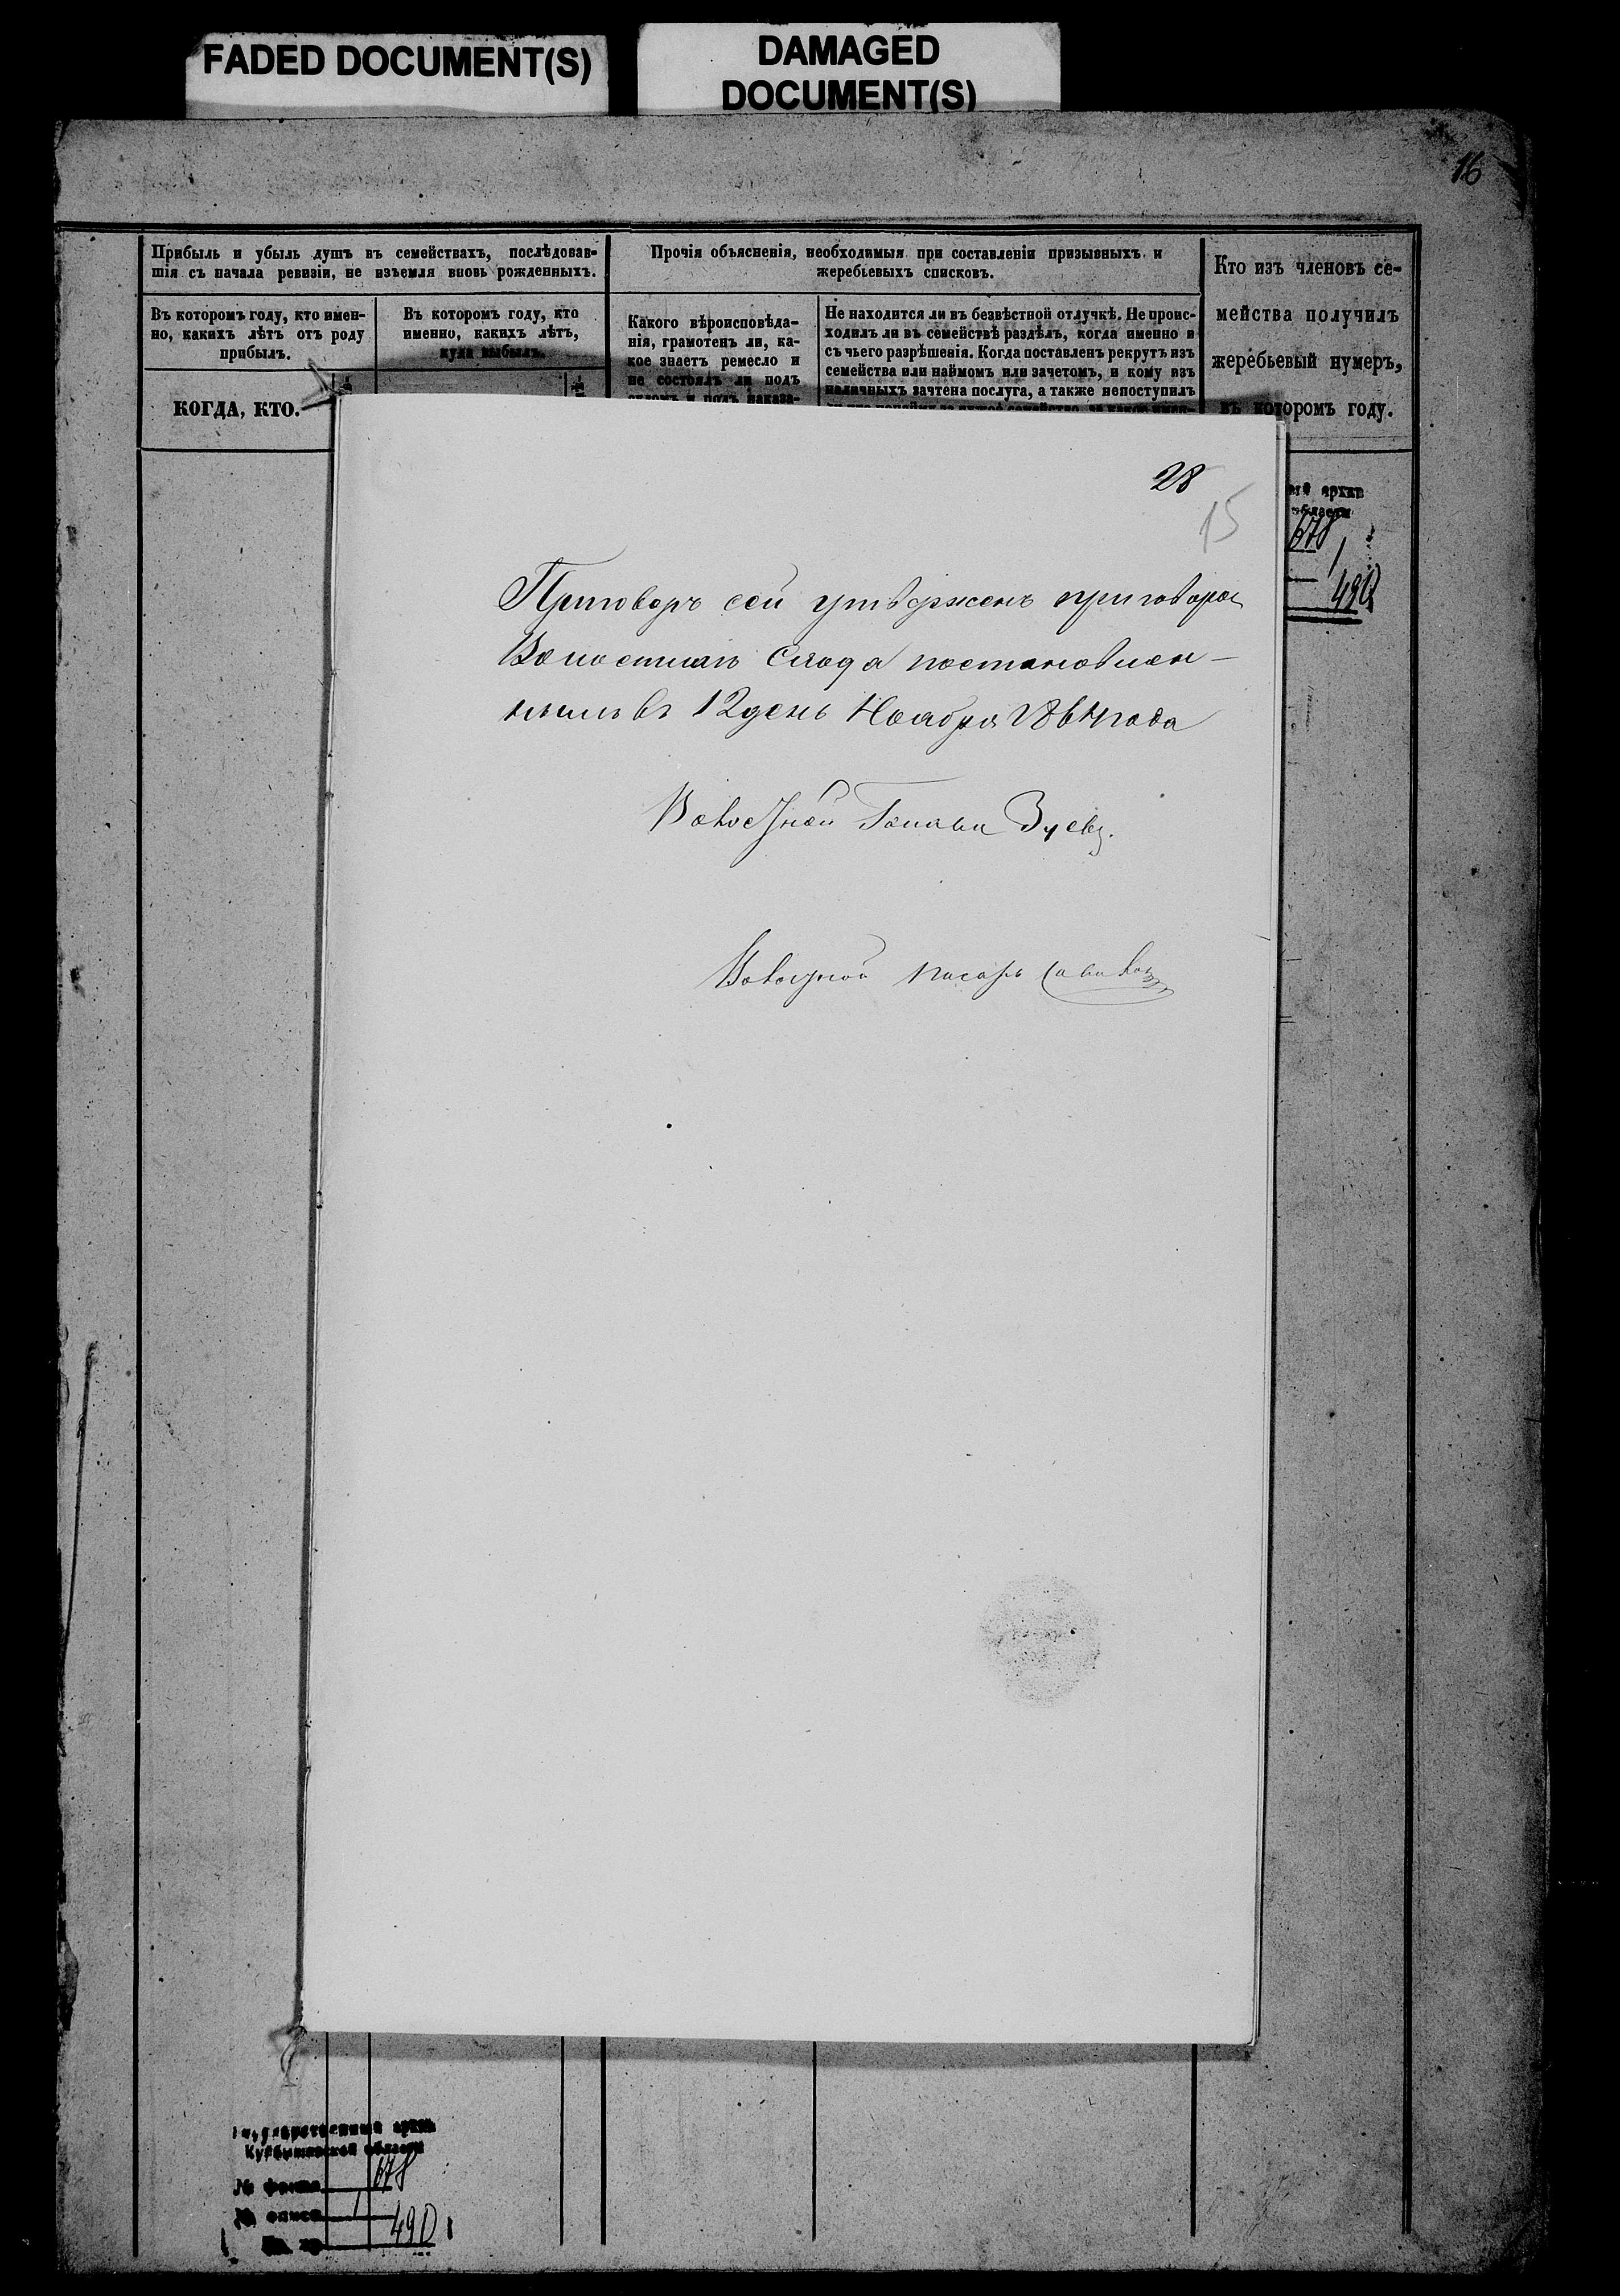 FADED DOCUMENT(S)
DAMAGED
DOCUMENT(S)
16
Прибыль и убыль душъ въ семействахъ, послѣдовав-
шія съ начала ревизіи, не изъемля вновь рожденныхъ.
Въ которомъ году, кто имен-
но, какихъ лѣтъ отъ роду
прибылъ.
КОГДА, КТО.
Въ которомъ году, кто
именно, какихъ лѣтъ,
куда выбылъ.
Прочія объясненія, необходимыя при составленіи призывныхъ и
жеребьевыхъ списковъ.
Какого вѣроисповѣда-
нія, грамотенъ ли, ка-
кое знаетъ ремесло и
не состоялъ ли подъ
судомъ и подъ наказа-
Не находится ли въ безвѣстной отлучкѣ. Не проис-
ходилъ ли въ семействѣ раздѣлъ, когда именно и
съ чьего разрѣшенія. Когда поставленъ рекрутъ изъ
семейства или наймомъ или зачетомъ, и кому изъ
наличныхъ зачтена послуга, а также непоступилъ
Кто изъ членовъ се-
мейства получилъ
жеребьевый нумеръ,
въ которомъ году.
28
15
Приговоръ сей утвержденъ приговоромъ
Волостнаго Схода постановлен-
нымъ въ 12 день Ноября 1864 года
Волостной Голова Зуевъ.
Волостной писарь
678
1
490
Государственный архив
Курганской области
№ фонда 678
№ описи 1
490